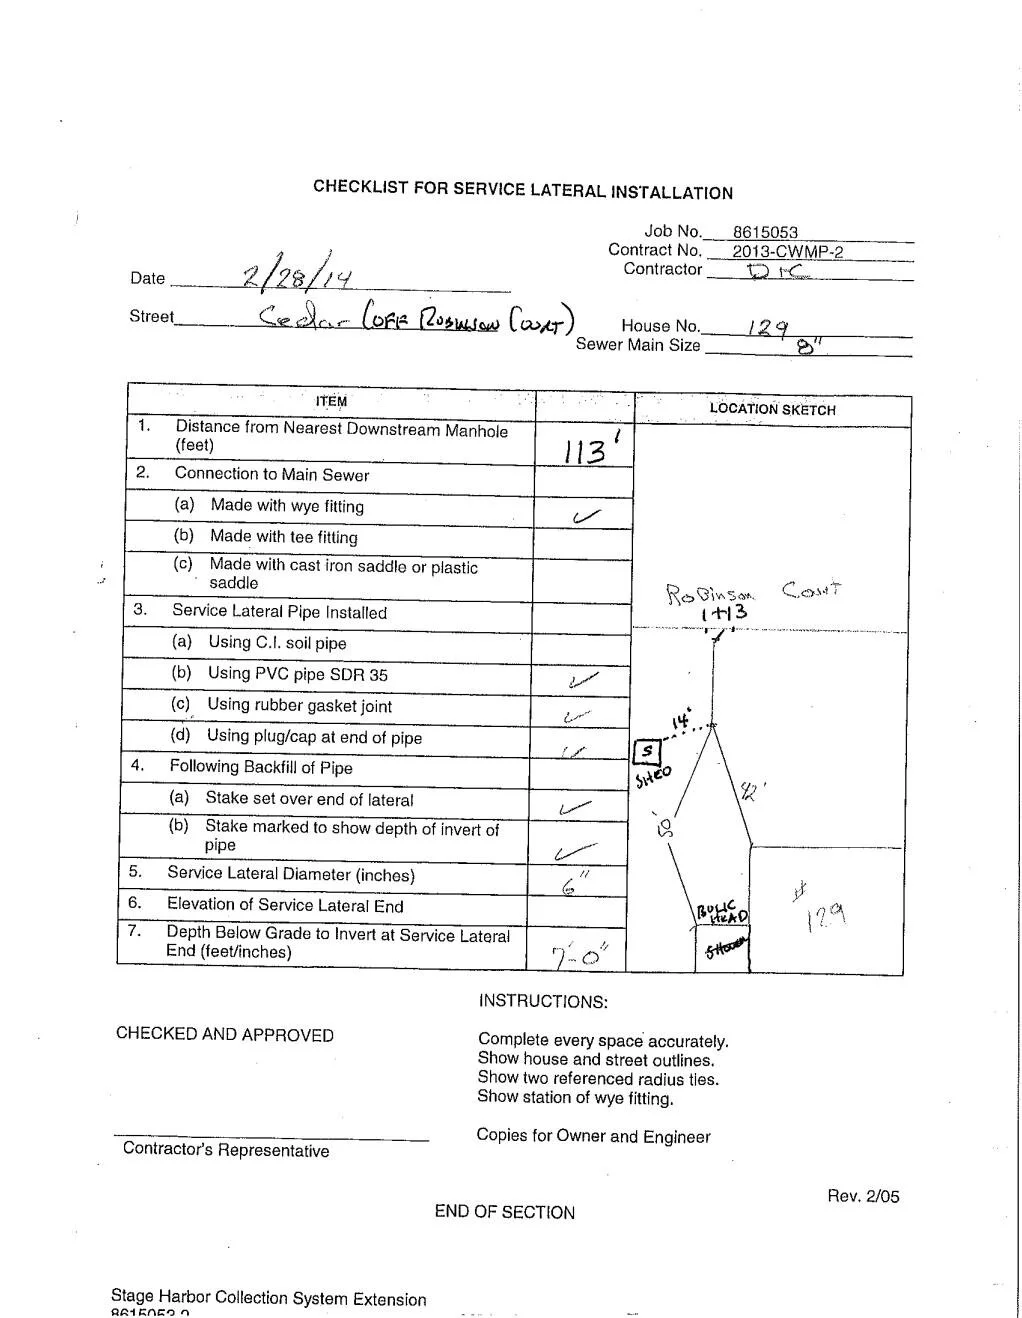 CHECKLIST FOR SERVICE LATERAL INSTALLATION
Job No. 8615053
Contract No. 2013-CWMP-2
Contractor
Date 2/28/14
Street Cedar (OFF ROBINSON COURT)
House No. 129
Sewer Main Size 8"
ITEM
LOCATION SKETCH
1. Distance from Nearest Downstream Manhole
(feet)
113'
2. Connection to Main Sewer
(a) Made with wye fitting ✓
(b) Made with tee fitting
(c) Made with cast iron saddle or plastic
saddle
3. Service Lateral Pipe Installed
(a) Using C.I. soil pipe
(b) Using PVC pipe SDR 35 ✓
(c) Using rubber gasket joint ✓
(d) Using plug/cap at end of pipe ✓
4. Following Backfill of Pipe
(a) Stake set over end of lateral ✓
(b) Stake marked to show depth of invert of
pipe ✓
5. Service Lateral Diameter (inches) 6"
6. Elevation of Service Lateral End
7. Depth Below Grade to Invert at Service Lateral
End (feet/inches) 7'-0"
Robinson Court
1+13
14'
S
SHED
42'
50'
BULK
HEAD
# 
129
INSTRUCTIONS:
CHECKED AND APPROVED
Complete every space accurately.
Show house and street outlines.
Show two referenced radius ties.
Show station of wye fitting.
Copies for Owner and Engineer
Contractor's Representative
Rev. 2/05
END OF SECTION
Stage Harbor Collection System Extension